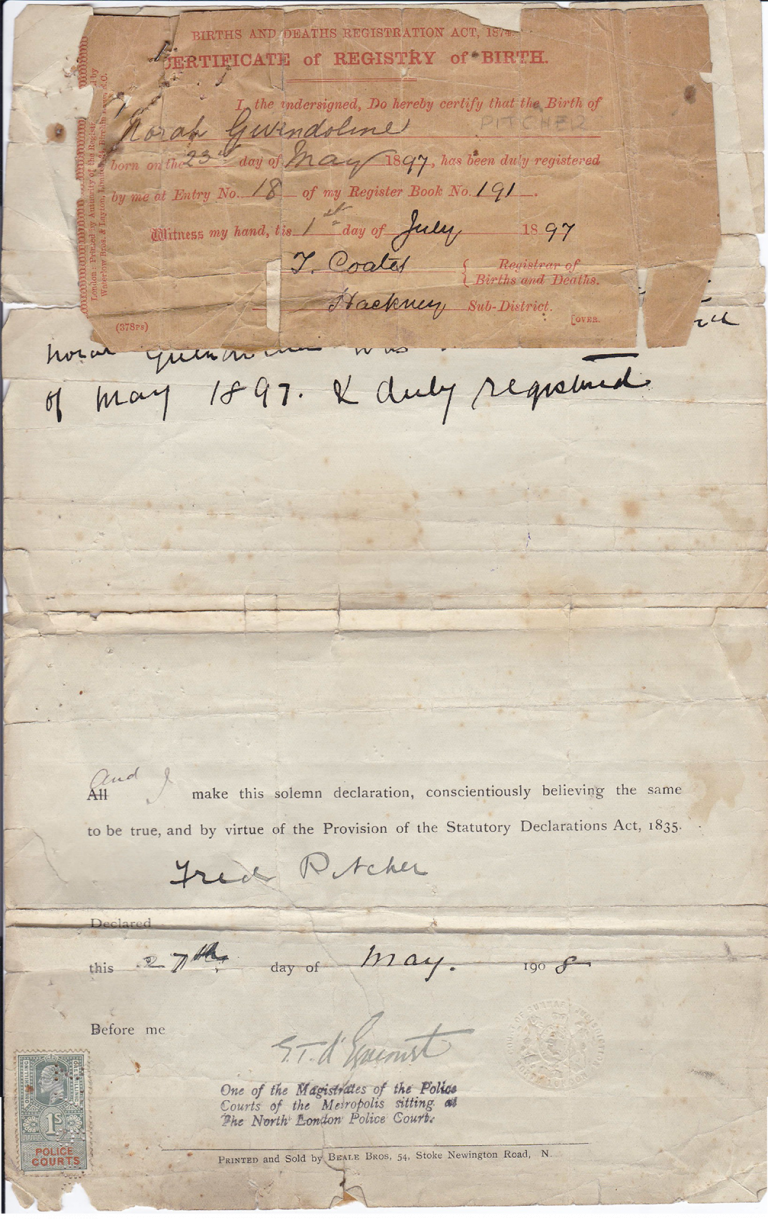 BIRTHS AND DEATHS REGISTRATION ACT, 1874
CERTIFICATE of REGISTRY of BIRTH.
I, the undersigned, Do hereby certify that the Birth of
Norah Gwendoline PITCHER
born on the 23rd day of May 1897, has been duly registered
by me at Entry No. 18 of my Register Book No. 191.
Witness my hand, this 1st day of July 1897
T. Coates { Registrar of
Births and Deaths.
Hackney Sub-District.
(378PS) [OVER.
Norah was
of May 1897. & duly registered
and I
All make this solemn declaration, conscientiously believing the same
to be true, and by virtue of the Provision of the Statutory Declarations Act, 1835.
Fred Pitcher
Declared
this 27th day of May. 1908
Before me
One of the Magistrates of the Police
Courts of the Metropolis sitting at
The North London Police Court.
1S
POLICE
COURTS
PRINTED and Sold by BEALE BROS. 54, Stoke Newington Road, N.